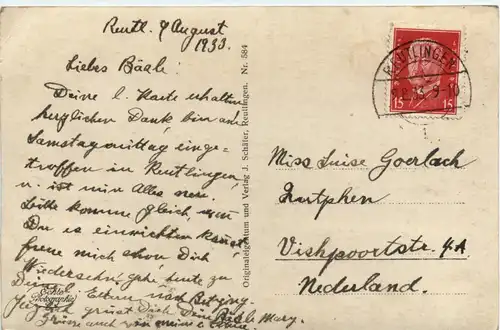 Reutl. 9 August
1933.
Liebes Bääli!
Deine l. Karte erhalten
herzlichen Dank bin am
Samstagmittag einge-
troffen in Reutlingen,
u. ist mir Alles neu.
Bitte komme gleich, wenn
Du es einrichten kannst
freue mich schon Dich
Wiedersehn gehe heute zu
Eltern und
grüst Dich Dein Mary.
Grüsse auch von meine
Echte
Photographie
Originaleigentum und Verlag J. Schäfer, Reutlingen. Nr. 584
REUTLINGEN
9-10
15 15
Miss Luise Goerlach
Zutphen
Vishpoortstr. 4A
Nederland.